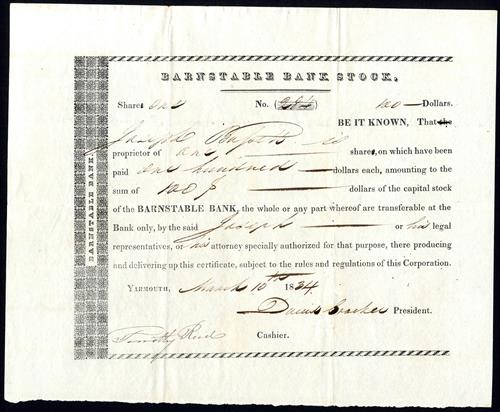 BARNSTABLE BANK STOCK.
Shares one No. 100 — Dollars.
BE IT KNOWN, That the
Joseph is
proprietor of one shares, on which have been
paid one hundred dollars each, amounting to the
sum of 100 dollars of the capital stock
of the BARNSTABLE BANK, the whole or any part whereof are transferable at the
Bank only, by the said Joseph or his legal
representatives, or his attorney specially authorized for that purpose, there producing
and delivering up this certificate, subject to the rules and regulations of this Corporation.
YARMOUTH, March 10th 1834
David Crocker President.
Timothy Reed Cashier.
BARNSTABLE BANK.